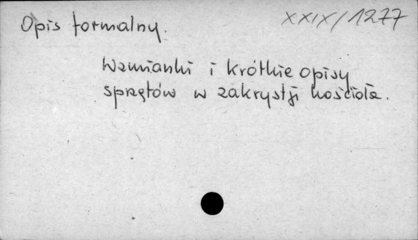 Opis formalny.
XXIX/1277
Wzmianki i krótkie opisy
sprzętów w zakrystji kościoła.